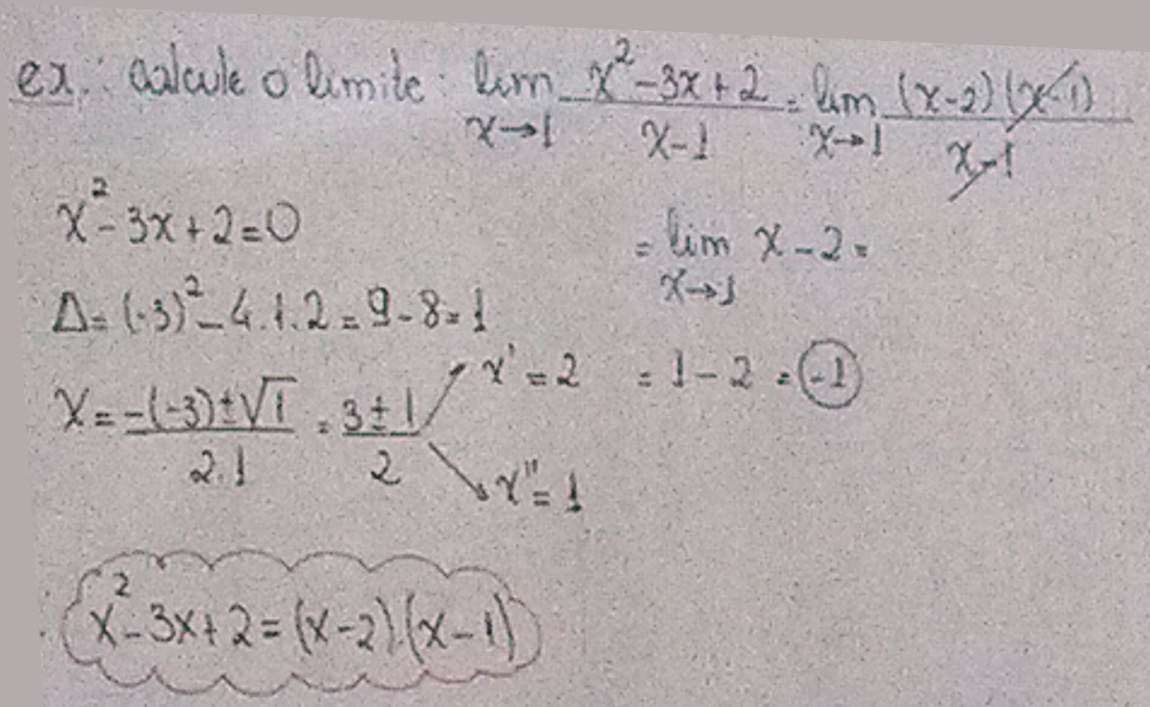 ex.: calcule o limite: lim x→1 (x² - 3x + 2)/(x - 1) = lim x→1 (x-2)(x-1)/(x-1)
x² - 3x + 2 = 0
= lim x→1 x - 2 =
Δ = (-3)² - 4.1.2 = 9 - 8 = 1
x = (-(-3) ± √1)/(2.1) = (3 ± 1)/2
x' = 2
= 1 - 2 = -1
x" = 1
x² - 3x + 2 = (x - 2).(x - 1)